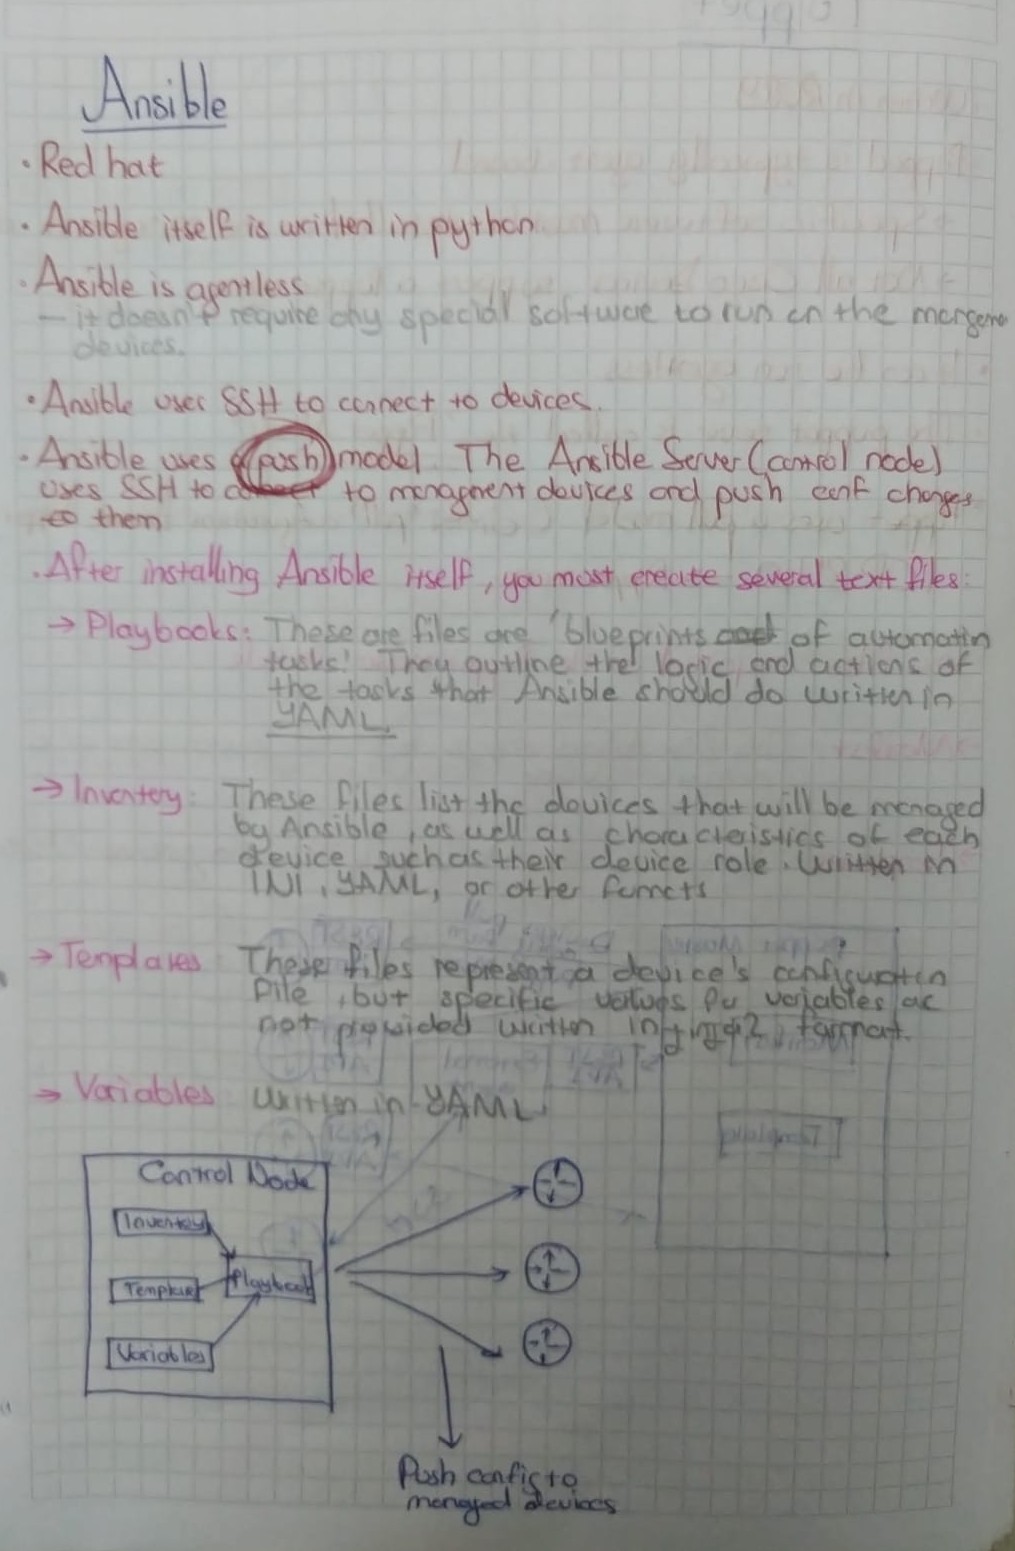 Ansible
· Red hat
· Ansible itself is written in python.
· Ansible is agentless
— it doesn't require any special software to run on the
devices.
· Ansible uses SSH to connect to devices.
· Ansible uses push model. The Ansible Server (control node)
uses SSH to to managment devices and push conf changes
to them
· After installing Ansible itself, you must create several text files:
→ Playbooks: These are files are 'blueprints of automation
tasks'. They outline the logic and actions of
the tasks that Ansible should do written in
YAML.
→ Inventory: These files list the devices that will be managed
by Ansible, as well as characteristics of each
device such as their device role. Written in
INI, YAML, or other formats
→ Templates These files represent a device's configuration
file, but specific values for variables
not provided written in jinja2 format.
→ Variables written in YAML.
Control Node
Inventory
Playbook
Variables
Push config to
managed devices